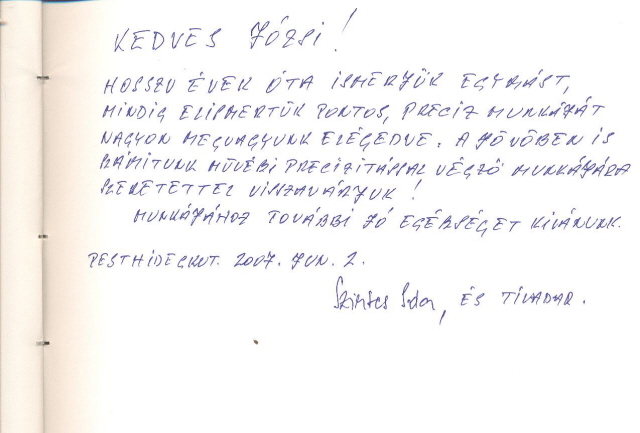 KEDVES JÓZSI!
HOSSZU ÉVEK ÓTA ISMERJÜK EGYMÁST,
MINDIG ELISMERTÜK PONTOS, PRECIZ MUNKÁJÁT
NAGYON MEGVAGYUNK ELÉGEDVE. A JÖVÖBEN IS
SZÁMITUNK MŰVÉSI PRECIZITÁSSAL VÉGZŐ MUNKÁJÁRA
SZERETETTEL VISSZAVÁRJUK!
MUNKÁJÁHOZ TOVÁBBI JÓ EGÉSSÉGET KIVÁNUNK.
PESTHIDEGKUT. 2007. JUN. 2.
, ÉS TIVADAR.